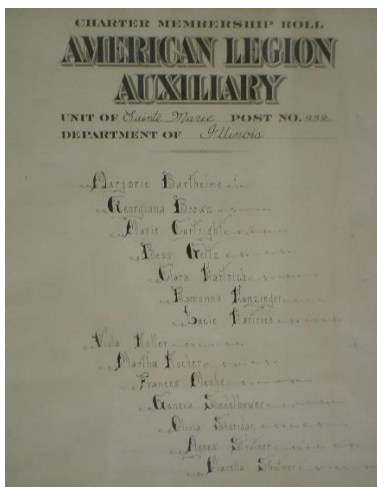 CHARTER MEMBERSHIP ROLL
AMERICAN LEGION
AUXILIARY
UNIT OF Sainte Marie POST NO. 932
DEPARTMENT OF Illinois
Marjorie Barthelme
Georgiana Brown
Marie Cartright
Bess Geltz
Clara Hartrich
Romanna Kanzinger
Lucie Hartrich
Viola Keller
Martha Kocher
Frances Meehe
Geneva Stadelbewer
Olivia Sheridan
Agnes Strutner
Martha Strutner